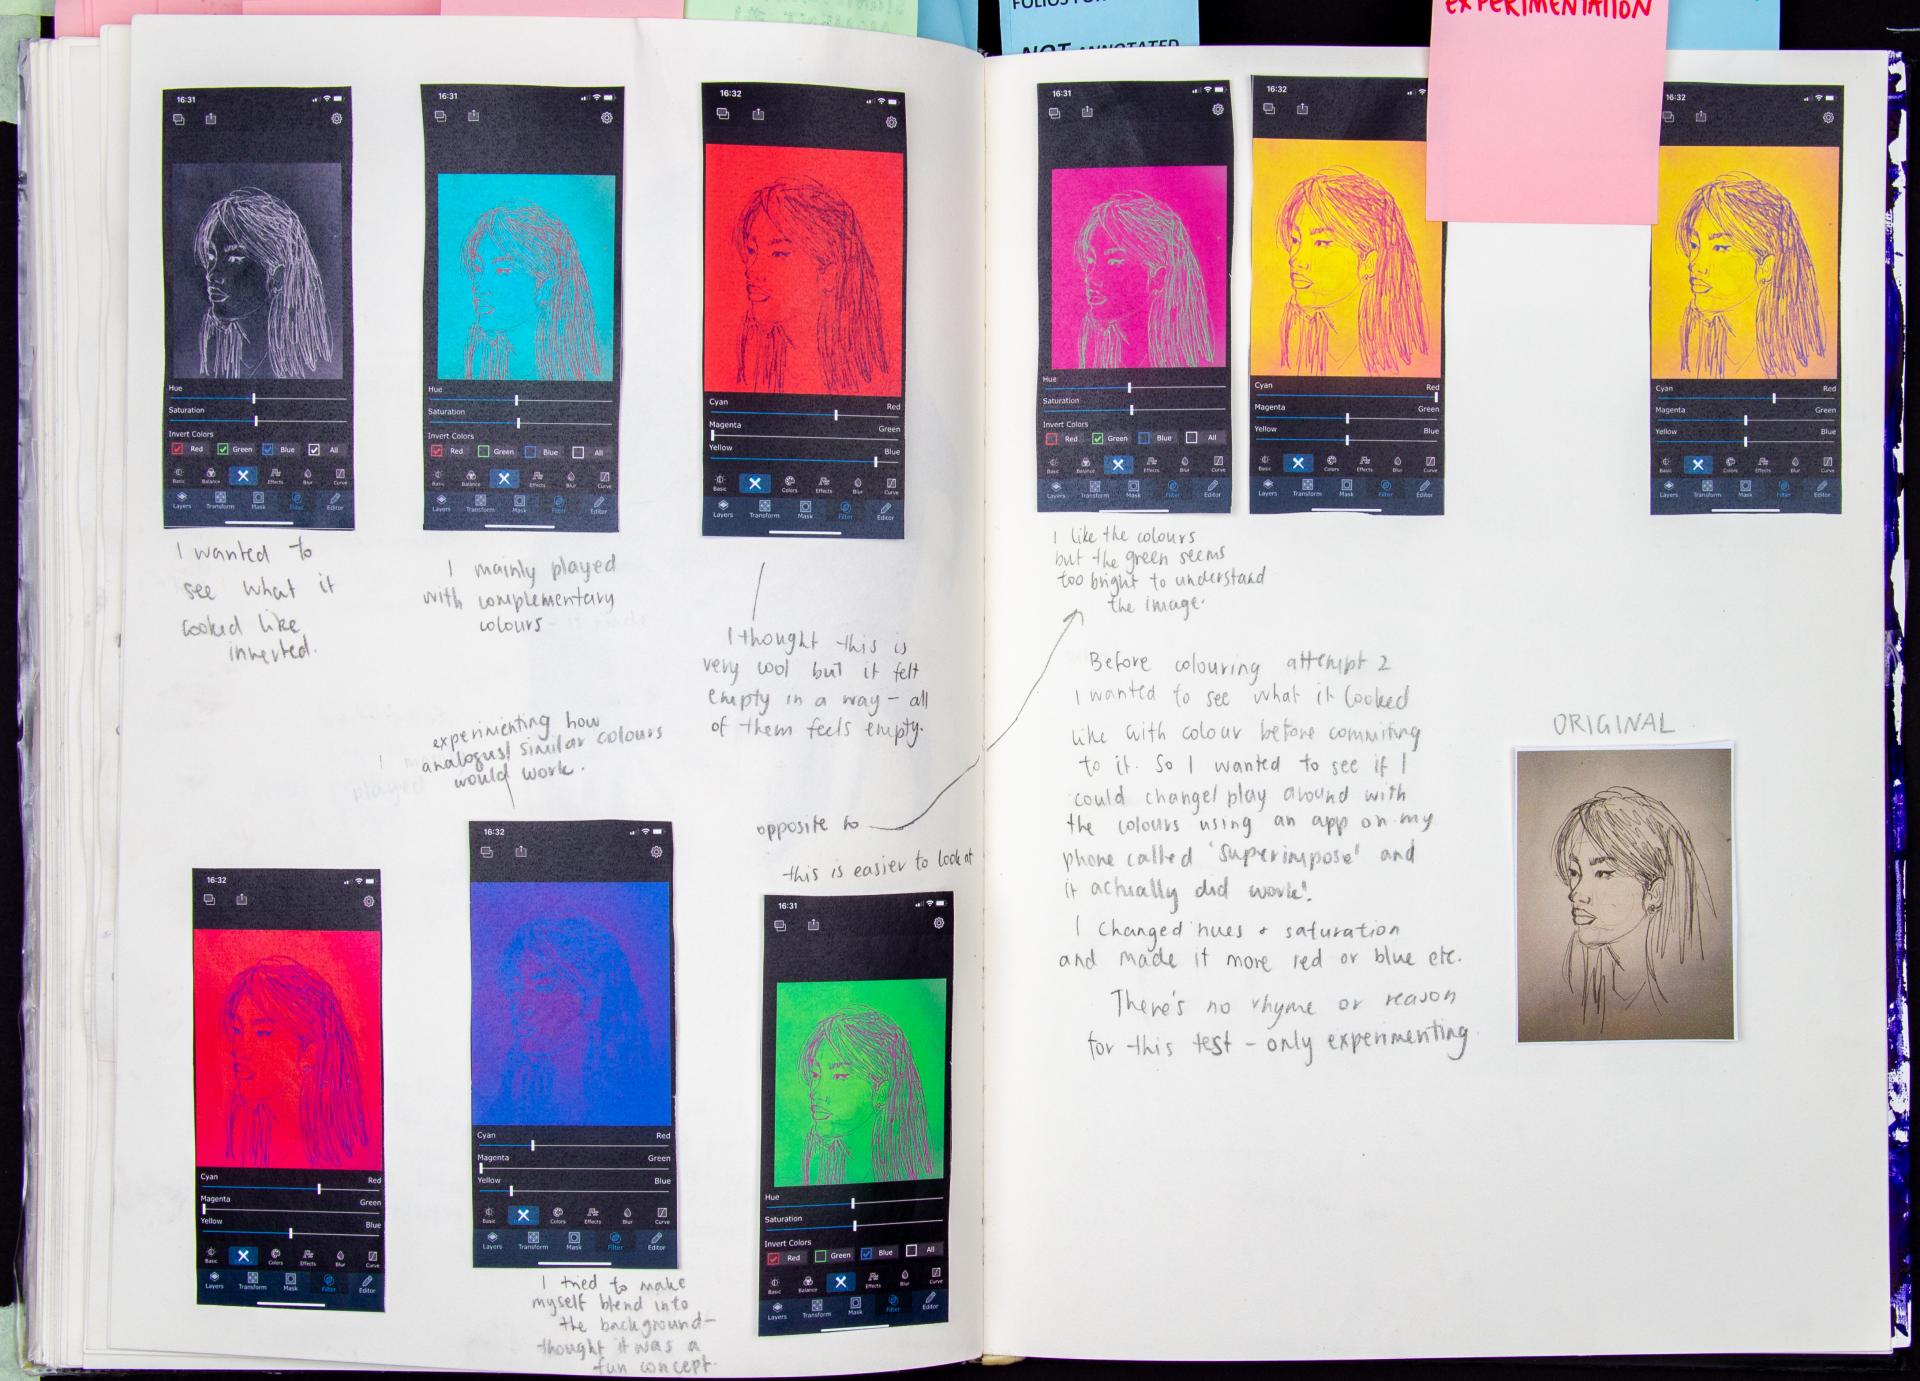 FOLIOS FOR
NOT ANNOTATED
EXPERIMENTATION
16:31
Hue
Saturation
Invert Colors
Red Green Blue All
Basic Balance Effects Blur Curve
Layers Transform Mask Filter Editor
I wanted to
see what it
looked like
inverted.
16:31
Hue
Saturation
Invert Colors
Red Green Blue All
Basic Balance Effects Blur Curve
Layers Transform Mask Filter Editor
I mainly played
with complementary
colours
16:32
Cyan Red
Magenta Green
Yellow Blue
Basic Colors Effects Blur Curve
Layers Transform Mask Filter Editor
I thought this is
very cool but it felt
empty in a way - all
of them feels empty.
experimenting how
analogus/similar colours
would work.
played
opposite to
this is easier to look at
16:32
Cyan Red
Magenta Green
Yellow Blue
Basic Colors Effects Blur Curve
Layers Transform Mask Filter Editor
16:32
Cyan Red
Magenta Green
Yellow Blue
Basic Colors Effects Blur Curve
Layers Transform Mask Filter Editor
I tried to make
myself blend into
the background-
thought it was a
fun concept.
16:31
Hue
Saturation
Invert Colors
Red Green Blue All
Basic Balance Effects Blur Curve
Layers Transform Mask Filter Editor
16:31
Hue
Saturation
Invert Colors
Red Green Blue All
Basic Balance Effects Blur Curve
Layers Transform Mask Filter Editor
I like the colours
but the green seems
too bright to understand
the image.
16:32
Cyan Red
Magenta Green
Yellow Blue
Basic Colors Effects Blur Curve
Layers Transform Mask Filter Editor
16:32
Cyan Red
Magenta Green
Yellow Blue
Basic Colors Effects Blur Curve
Layers Transform Mask Filter Editor
Before colouring attempt 2
I wanted to see what it looked
like with colour before commiting
to it. So I wanted to see if I
could change/play around with
the colours using an app on my
phone called 'superimpose' and
it actually did work!
I changed hues + saturation
and made it more red or blue etc.
There's no rhyme or reason
for this test - only experimenting
ORIGINAL